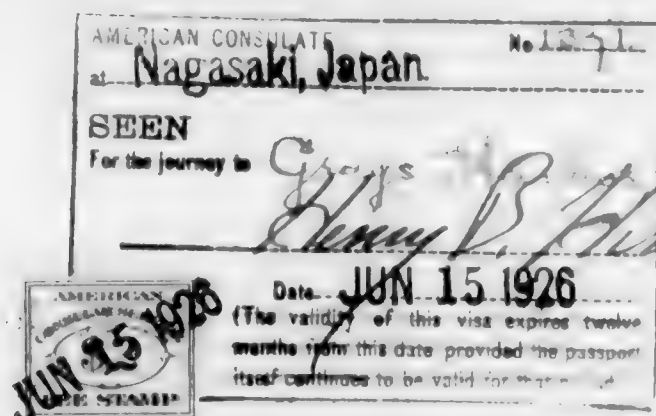 AMERICAN CONSULATE
No
at Nagasaki, Japan.
SEEN
For the journey to
Henry B.
Date JUN 15 1926
(The validity of this visa expires twelve
months from this date provided the passport
itself continues to be valid for that
AMERICAN
JUN 15 1926
FEE STAMP